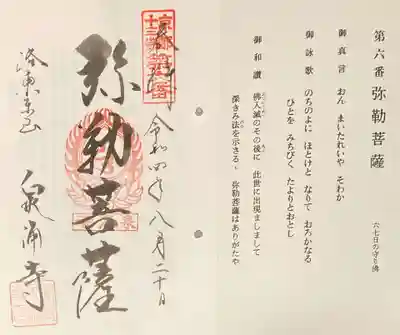 第六番 弥勒菩薩 六七日の守り佛
御真言 おん まいたれいや そわか
御詠歌 のちのよに ほとけと なりて おろかなる
ひとを みちびく たよりとおとし
御和讃 佛入滅のその後に 此世に出現ましまして
深きみ法を示さる、 弥勒菩薩はありがたや
奉拝 令和四年八月二十日
弥勒菩薩
洛東東山 泉涌寺